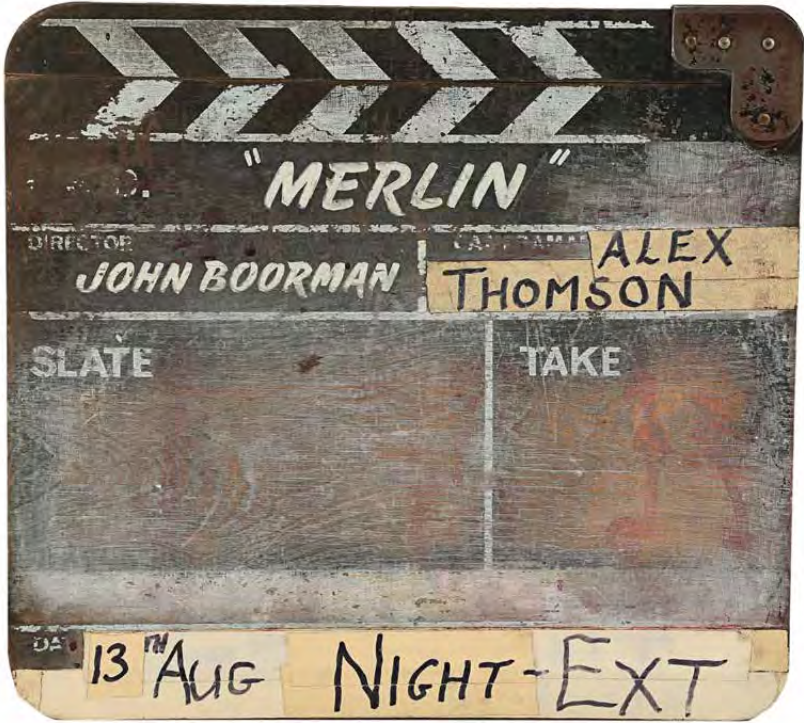 "MERLIN"
DIRECTOR
JOHN BOORMAN
ALEX
THOMSON
SLATE
TAKE
13TH AUG NIGHT-EXT